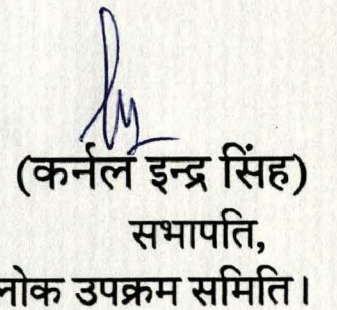 (कर्नल इन्द्र सिंह)
सभापति,
उपक्रम समिति।